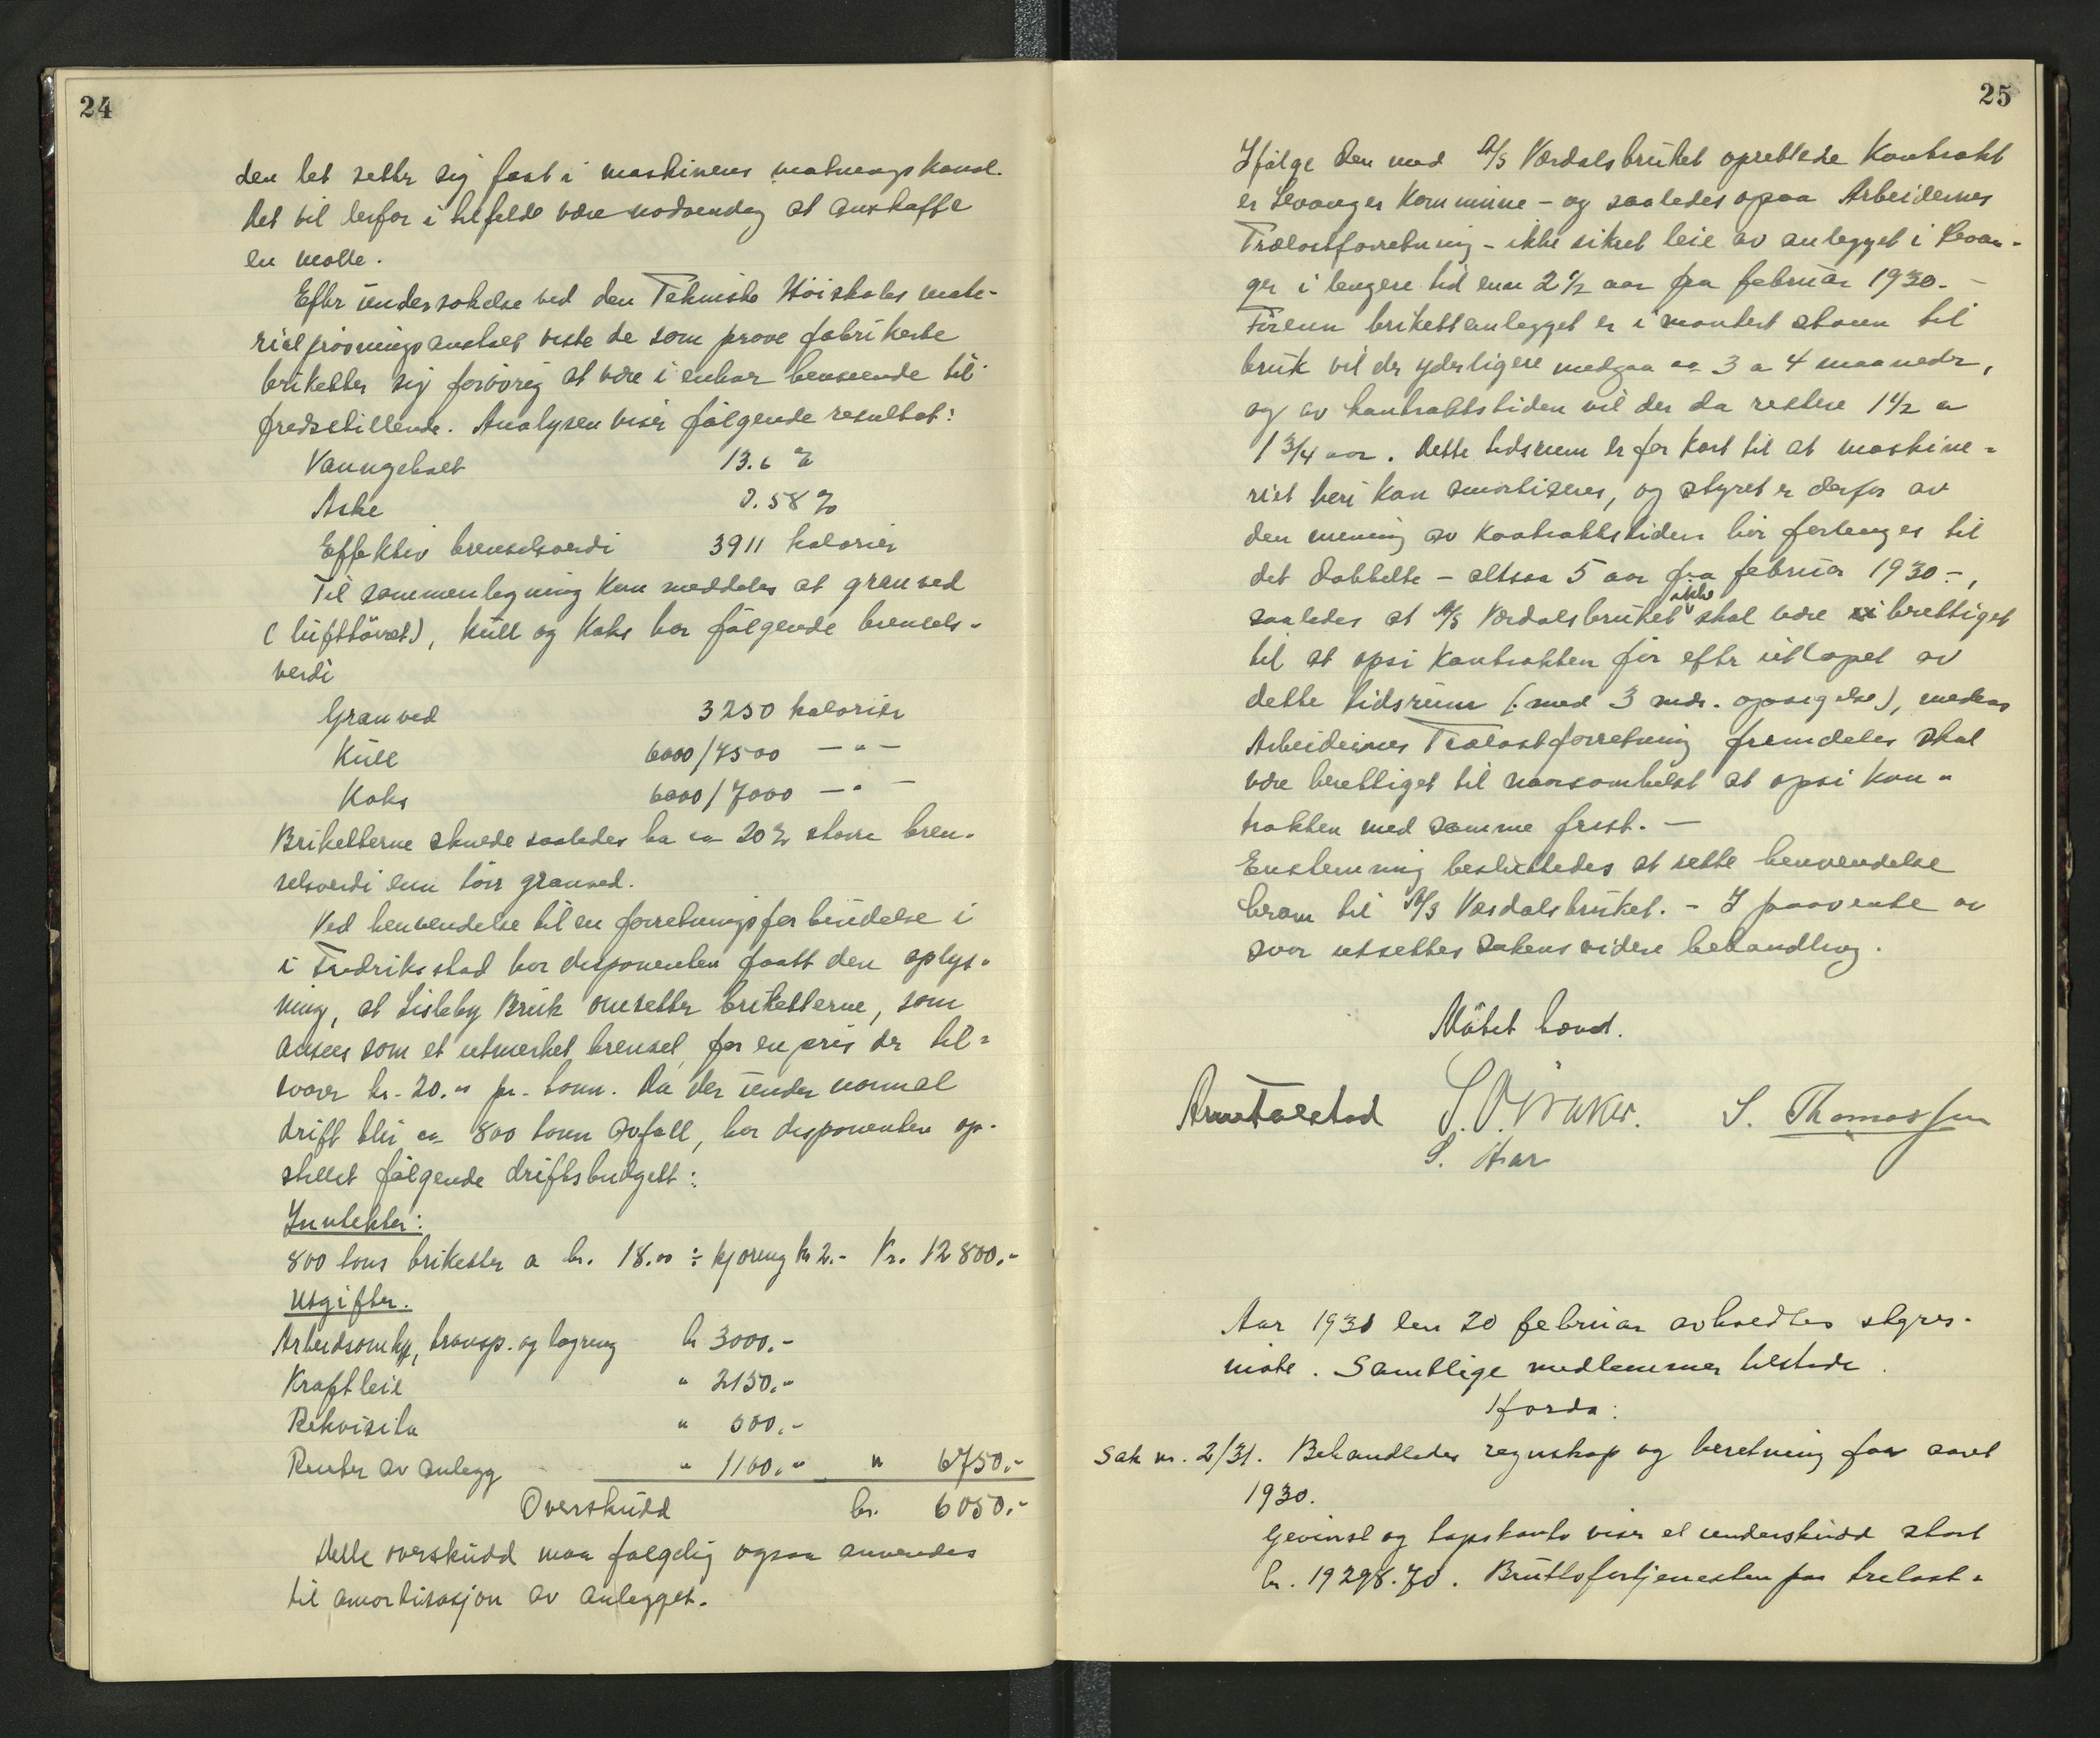 24
den let setter sig fast i maskinens matningskanal.
Det vil derfor i tilfelde være nødvendig at anskaffe
en mølle.
Efter undersøkelse ved den Tekniske Høiskoles mate-
rialprøvningsanstalt viste de som prøve fabrikerte
briketter sig forøvrig at være i enhver henseende til-
fredsstillende. Analysen viser følgende resultat:
Vanngehalt 13.6 %
Aske 0.58 %
Effektiv brenselsverdi 3911 kalorier
Til sammenlegning kan meddeles at granved
(lufttørret), kull og koks har følgende brensels-
verdi
Granved 3250 kalorier
Kull 6000/7500 — " —
Koks 6000/7000 — " —
Briketterne skulde saaledes ha ca 20 % større bren-
selsverdi enn tørr granved.
Ved henvendelse til en forretningsforbindelse i
i Fredriksstad har disponenten faatt den oplys-
ning, at Lisleby Bruk omsetter briketterne, som
ansees som et utmerket brensel, for en pris der til-
svarer kr. 20.00 pr. tonn. Da der under normal
drift blir ca 800 tonn avfall, har disponenten op-
stillet følgende driftsbudgett:
Inntekter:
800 tons briketter a kr. 18.00 ÷ kjøring kr 2.- Kr. 12800.-
Utgifter.
Arbeidsomk., transp. og lagring kr 3000.-
Kraftleie " 2150.-
Rekvisita " 500.-
Renter av anlegg " 1100.- " 6750.-
Overskudd kr. 6050.-
Dette overskudd maa følgelig ogsaa anvendes
til amortisasjon av anlegget.
25
Ifølge den med A/S Værdalsbruket oprettede kontrakt
er Levanger Kommune - og saaledes ogsaa Arbeidernes
Trælastforretning - ikke sikret leie av anlegget i Levan-
ger i lengere tid enn 2 1/2 aar fra februar 1930. -
Førenn brikettanlegget er i montert stann til
bruk vil der yderligere medgaa ca 3 a 4 maaneder,
og av kontraktstiden vil der da restere 1 1/2 a
1 3/4 aar. Dette tidsrum er for kort til at maskine-
riet heri kan amortiseres, og styret er derfor av
den mening av kontraktstiden bør forlenges til
det dobbelte - altsaa 5 aar fra februar 1930 -,
saaledes at A/S Værdalsbruket ikke skal være berettiget
til at opsi kontrakten før efter utløpet av
dette tidsrum (: med 3 mdr. opsigelse), medens
Arbeidernes Trælastforretning fremdeles skal
være berettiget til naarsomhelst at opsi kon-
trakten med samme frist. —
Enstemmig besluttedes at rette henvendelse
herom til A/S Værdalsbruket. - I paavente av
svar utsettes sakens videre behandling.
Møtet hevet.
Arne Falstad S. Thomassen
Aar 1931 den 20 februar avholdtes styres-
møte. Samtlige medlemmer tilstede.
Sak nr. 2/31. Behandledes regnskap og beretning for aaret
1930.
Gevinst og tapskonto viser et underskudd stort
kr. 19298.70. Bruttofortjenesten paa trelast-